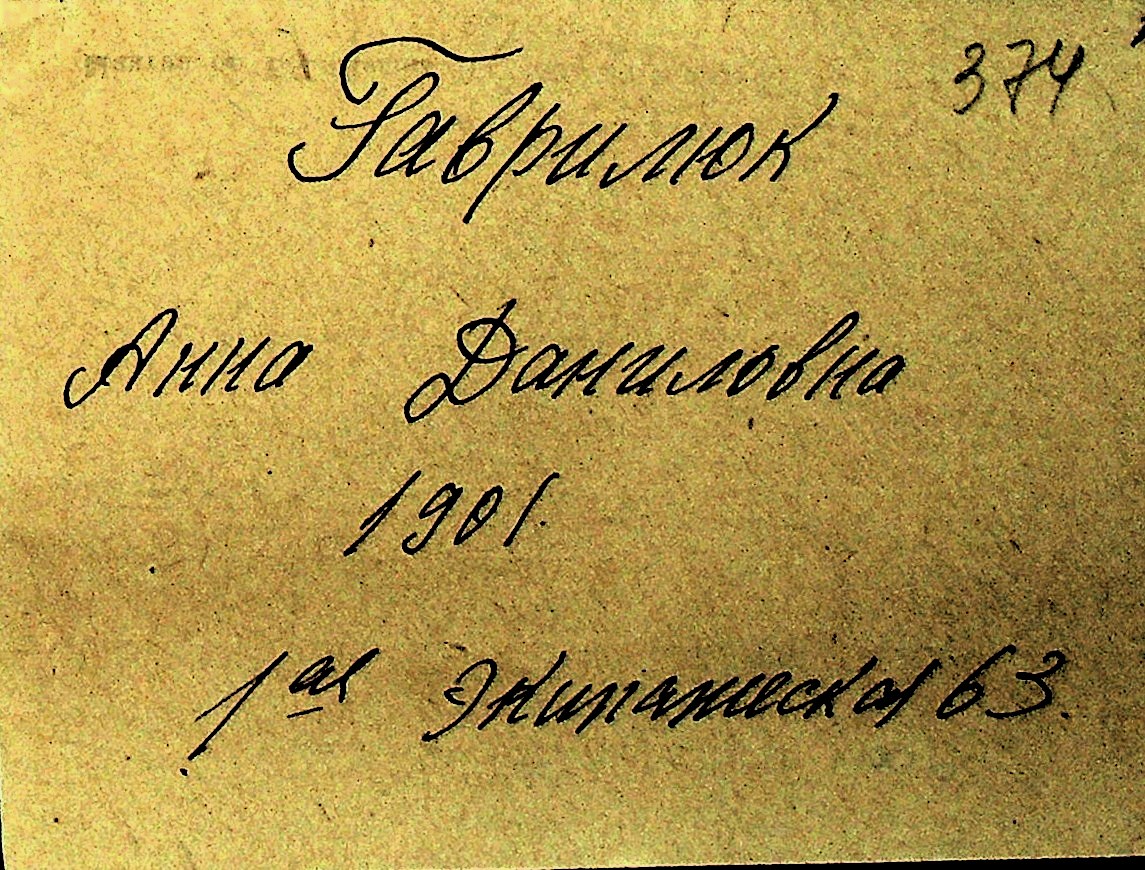 374
Гаврилюк
Анна Даниловна
1901.
1ая Экипажеская 63.